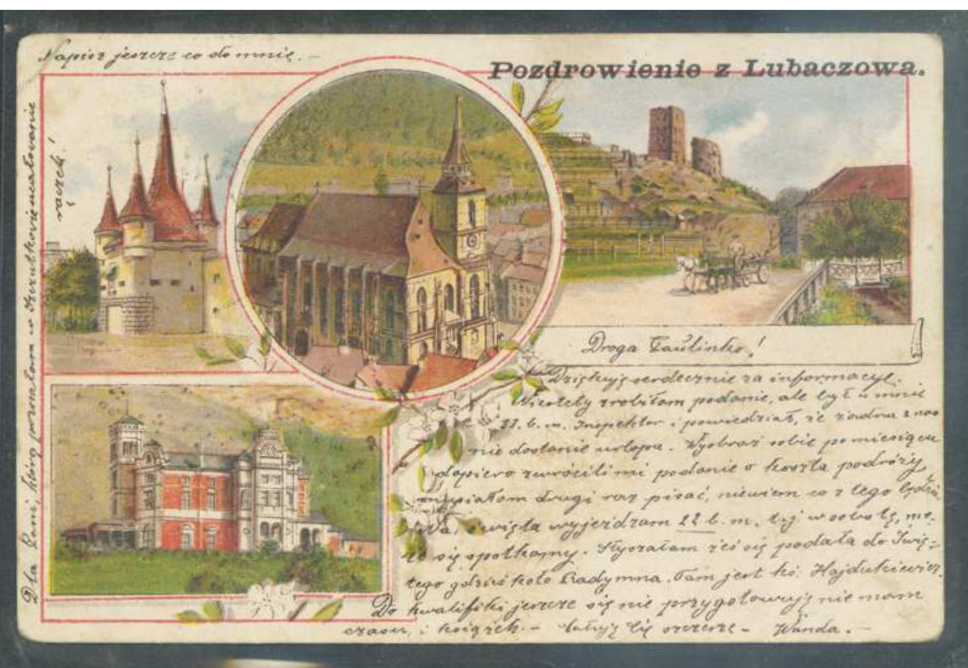 Napisz jeszcze co do mnie. -
Pozdrowienie z Lubaczowa.
Dla Pani, którą poznałam w ucałowanie
rączek!
Droga Paulinko!
Dziękuję serdecznie za informacyę.
Niestety zrobiłam podanie, ale był u mnie
22. b. m. Inspektor i powiedział, że żadna z nas
nie dostanie urlopu. Wyobraź sobie po miesiącu
dopiero zwrócili mi podanie o koszta podróży
musiałam drugi raz pisać, niewiem co z tego będzie
Na święta wyjeżdżam 22 b. m. t. j. w sobotę, mo-
że się spotkamy. Słyszałam żeś się podała do Świę-
tego gdzieś koło Radymna. Tam jest ks. Hajdukiewicz.
Do kwalifiki jeszcze się nie przygotowuję nie mam
czasu, i książek. - Całuję Cię - Wanda. -